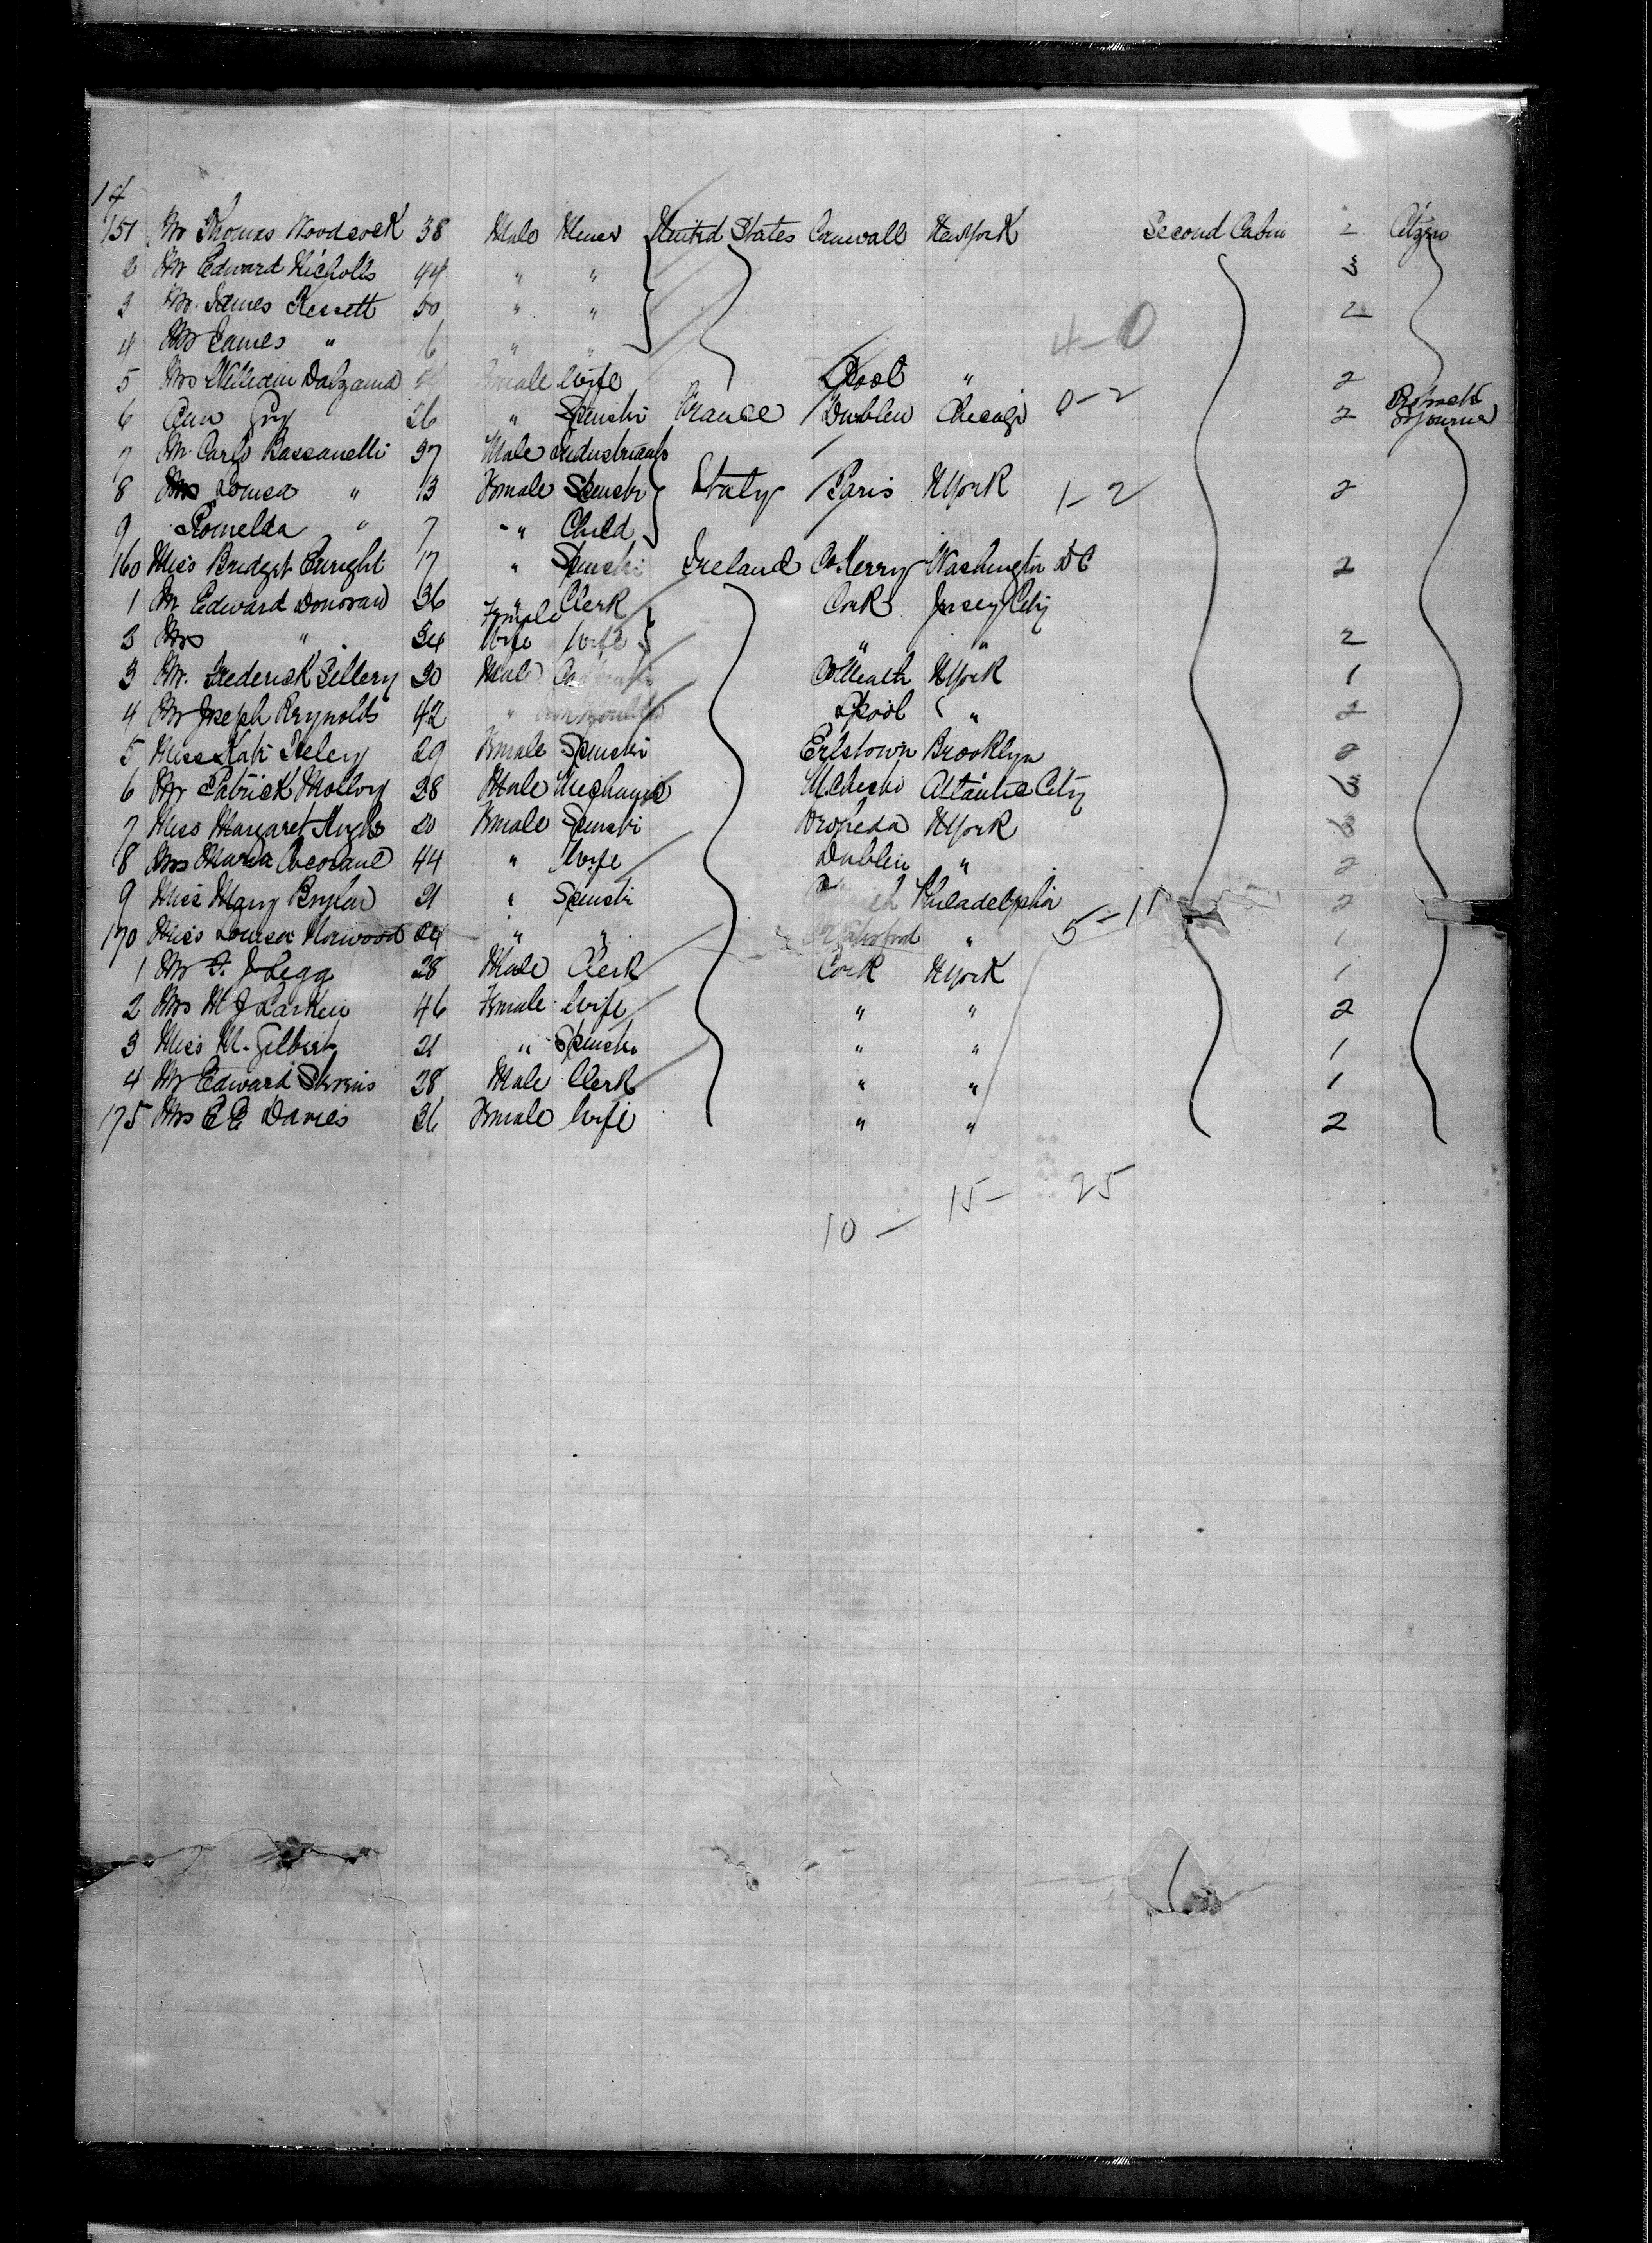 14
151 Mr Thomas Woodcock 38 Male Miner United States Cornwall New York Second Cabin 2 Citizen
2 Mr Edward Nicholls 44 " " 3
3 Mr. James 50 " " 2
4 Mr James " 6 " "
4-0
5 Mrs William male Wife L'pool " 2
6 26 " Spinstr France Dublin Chicago 0-2 2 Protracted Sojourn
7 Mr Carlo Bassanelli 37 Male Industrial
8 Louisa " 13 Female Spinstr Italy Paris N York 1-2 2
9 Romelda " 7 " Child
160 Miss Bridget Enright 17 " Spinstr Ireland Co Kerry Washington DC 2
1 Mr Edward Donovan 36 " Clerk Cork Jersey City
Female
2 Mrs " 34 Wife Wife " " 2
3 Mr. Frederick 30 Male Co Meath N York 1
4 Mr Joseph Reynolds 42 " L'pool " 2
5 Miss Kate 29 Female Spinstr Brooklyn 2
6 Mr Patrick Molloy 28 Male Mechanic Atlantic City 3
7 Miss Margaret 20 Female Spinstr Drogheda N York 3
8 Mrs Maria 44 " Wife Dublin " 2
9 Miss Mary 21 " Spinstr Philadelphia 2
5-11
170 Miss Louisa Norwood 24 " " " 1
1 Mr F. J Legg 28 Male Clerk Cork N York 1
2 Mrs M J Larkin 46 Female Wife " " 2
3 Miss M. Gilbert 21 " Spinstr " " 1
4 Mr Edward 28 Male Clerk " " 1
175 Mrs E E Davies 36 Female Wife " " 2
10 - 15 - 25